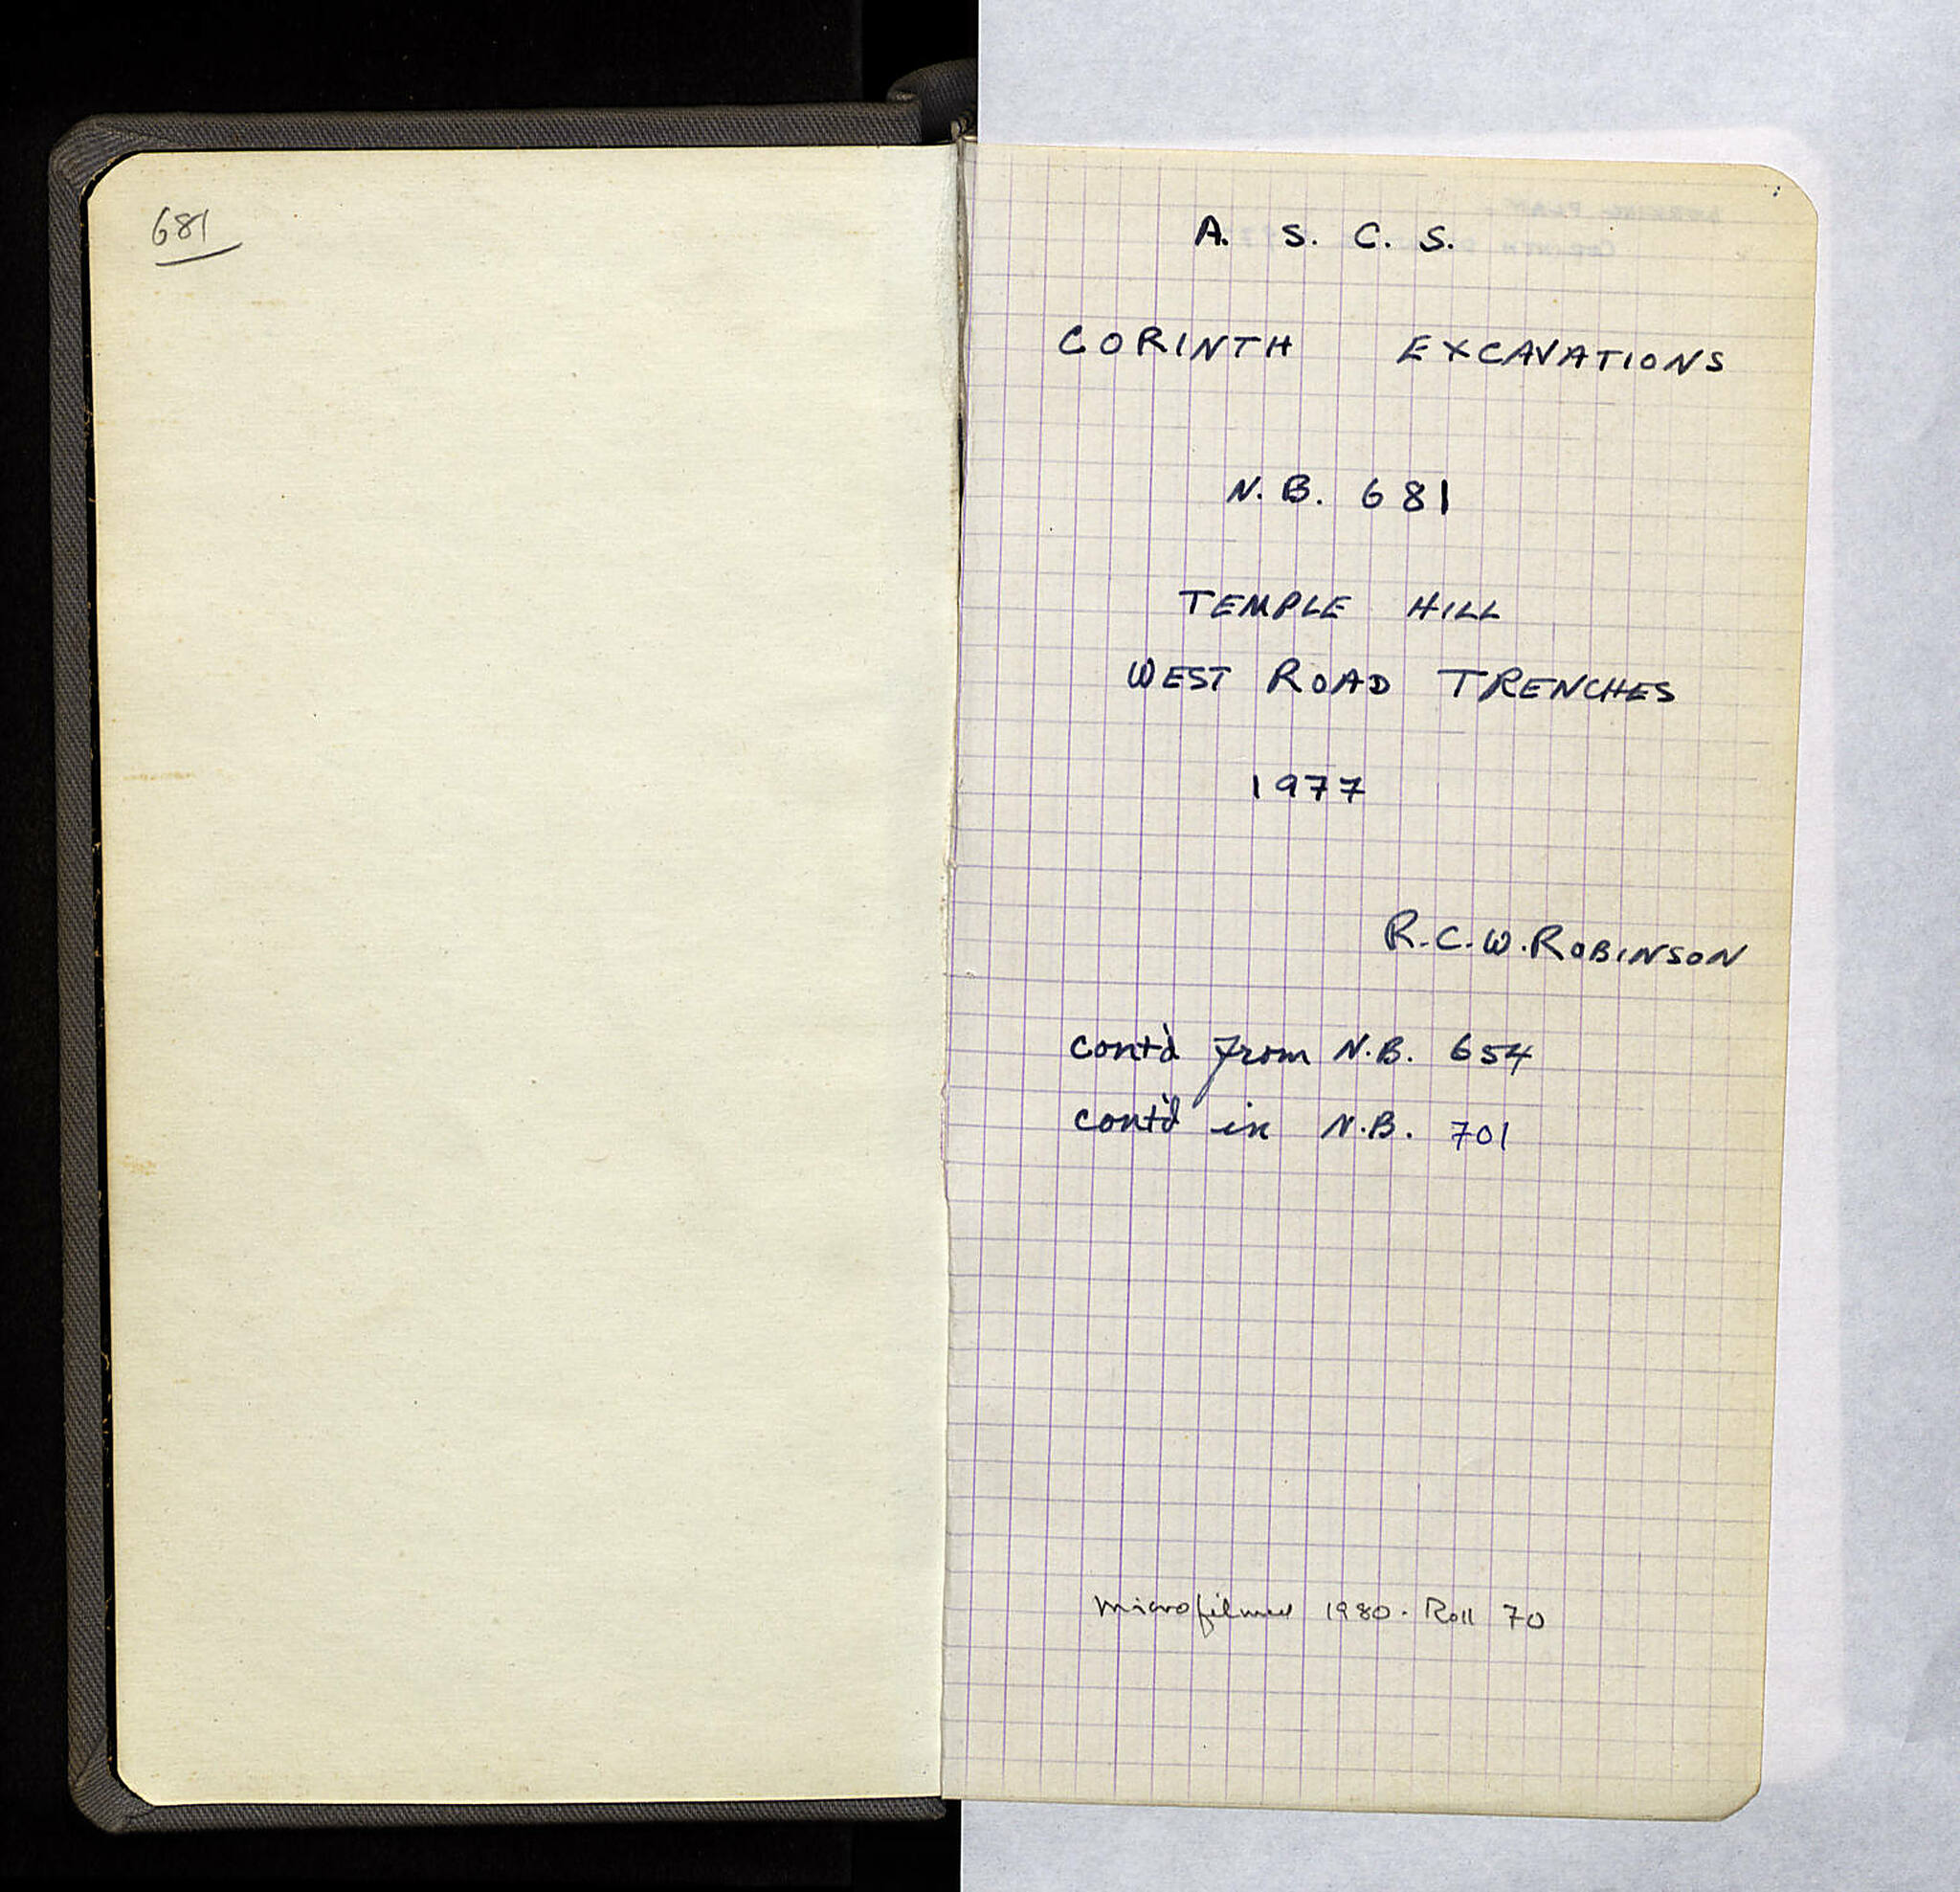 681
A. S. C. S.
CORINTH EXCAVATIONS
N. B. 681
TEMPLE HILL
WEST ROAD TRENCHES
1977
R.C.W. ROBINSON
cont'd from N.B. 654
cont'd in N.B. 701
Microfilmed 1980. Roll 70